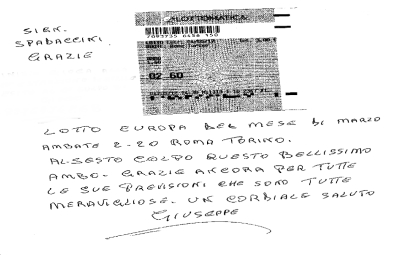 SIGN.
SPADACCINI.
GRAZIE
LOTTOMATICA
02 60
LOTTO EUROPA DEL MESE DI MARZO
AMBATE 2-20 ROMA TORINO.
AL SESTO COLPO QUESTO BELLISSIMO
AMBO. GRAZIE ANCORA PER TUTTE
LE SUE PREVISIONI CHE SONO TUTTE
MERAVIGLIOSE. UN CORDIALE SALUTO
GIUSEPPE